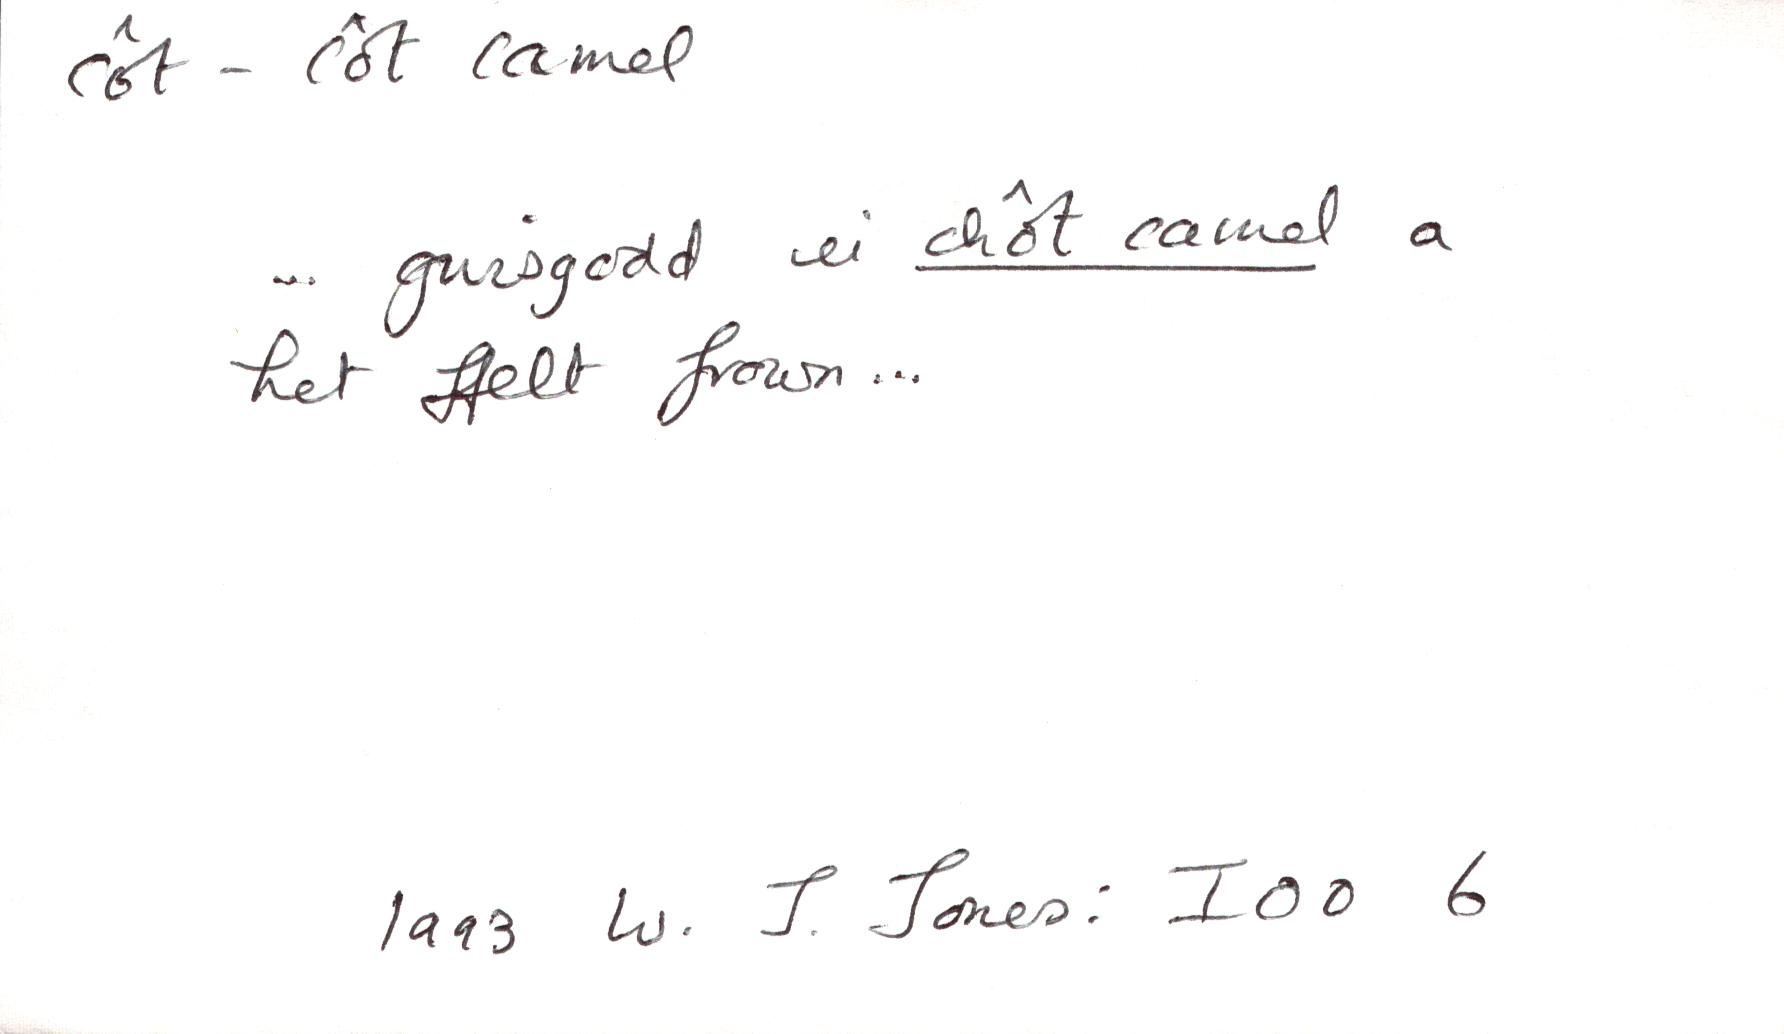 côt - côt camel
... gwisgodd ei chôt camel a
het ffelt frown...
1993 W. J. Jones: IOO 6